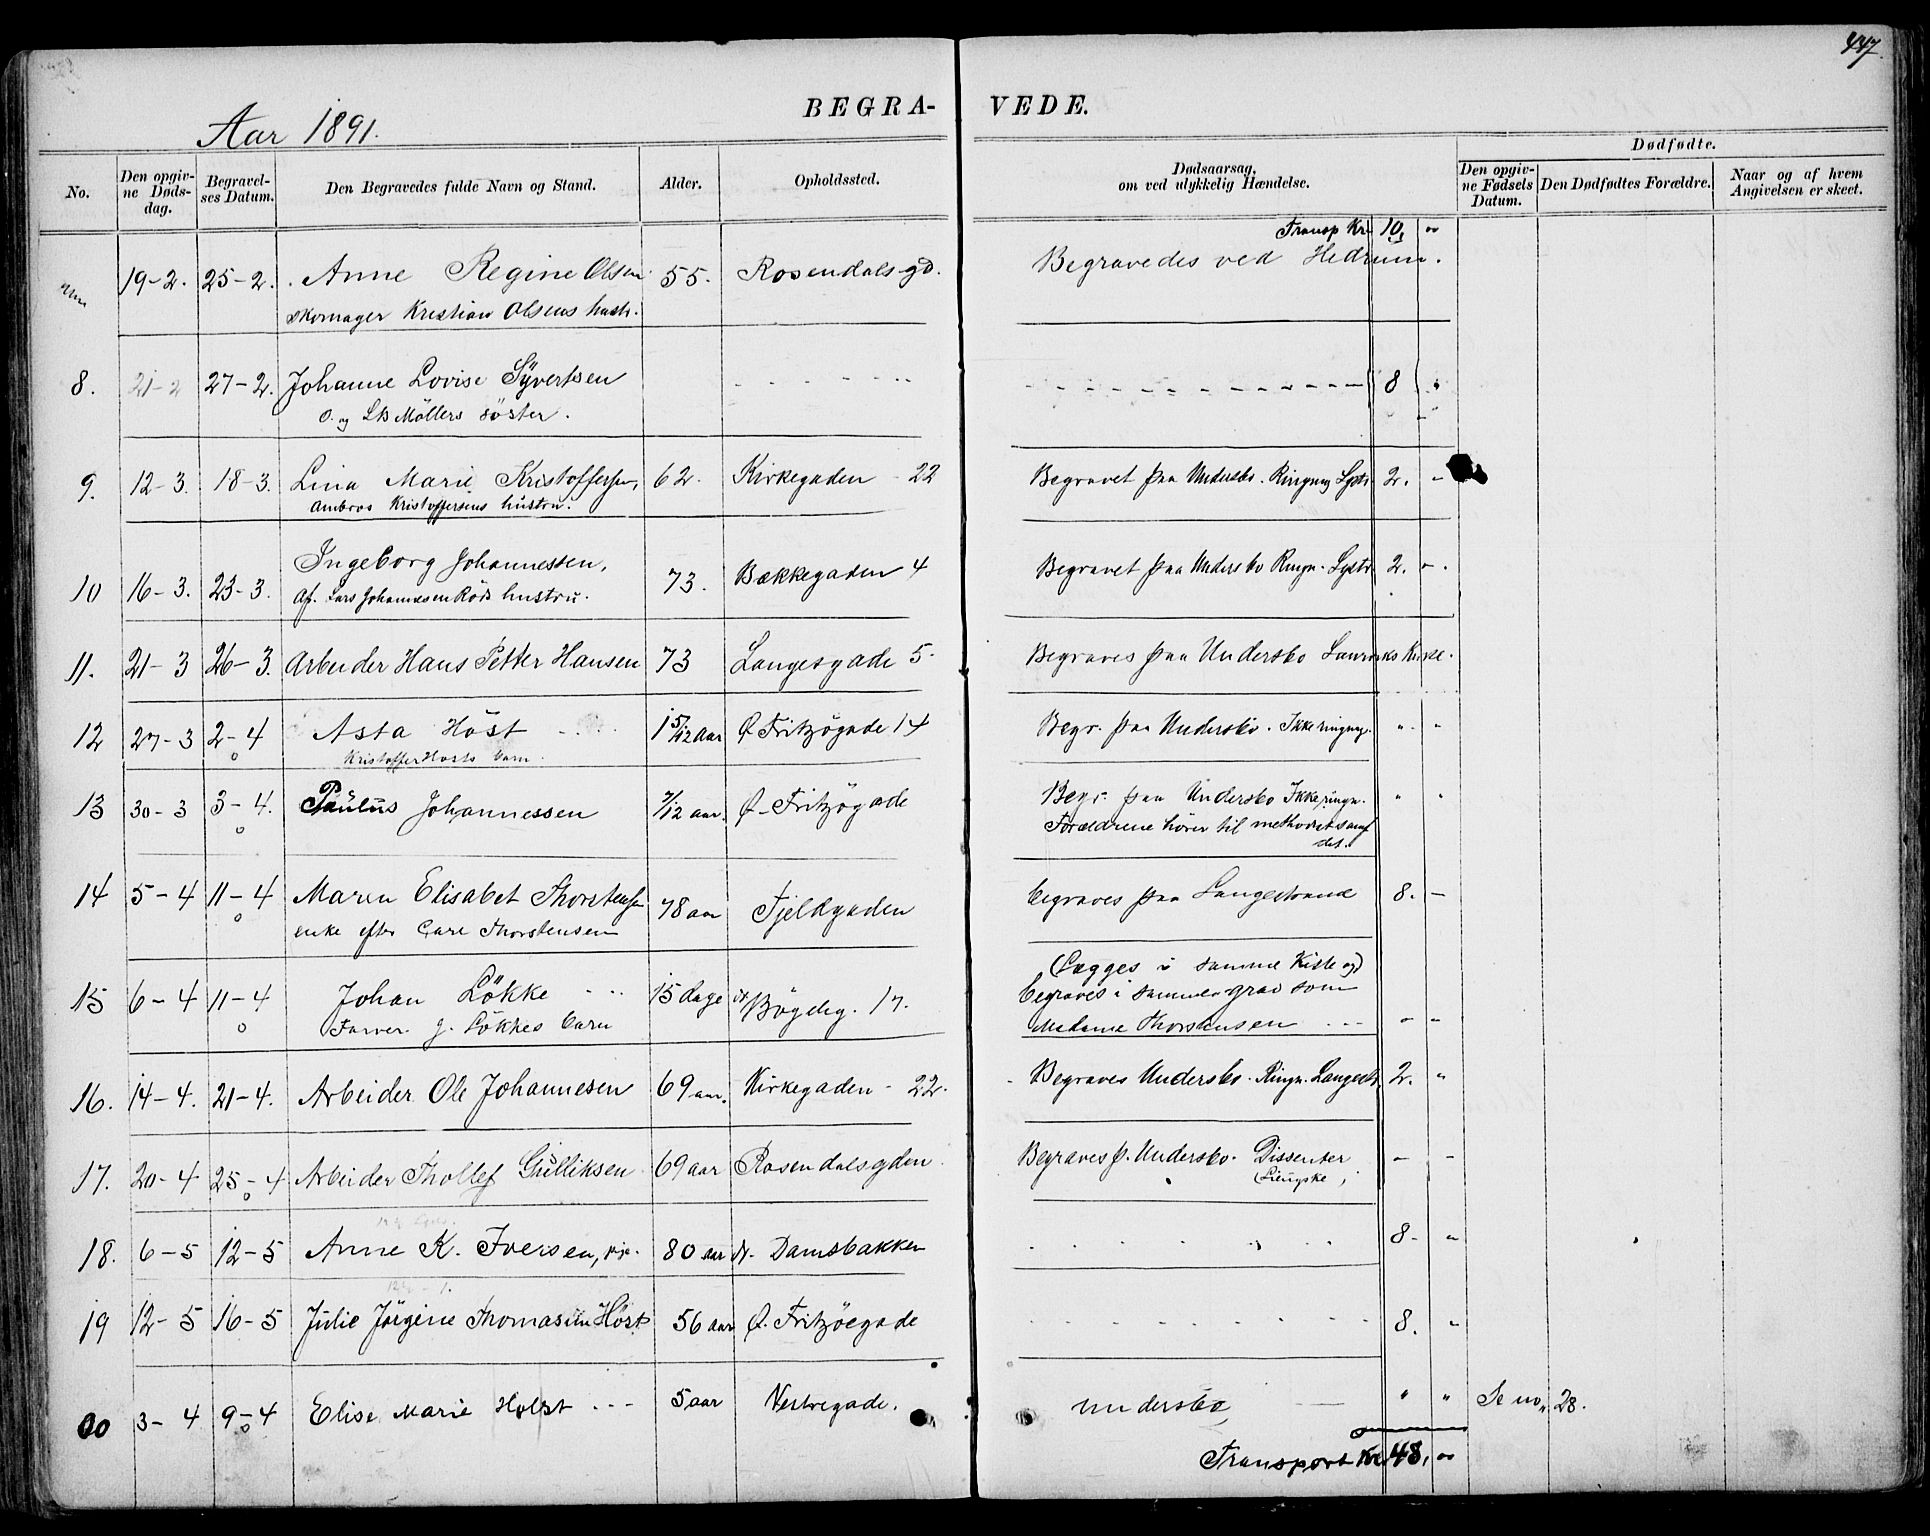 447.
Aar 1891.
BEGRA-
VEDE.
No.
Den opgiv-
ne Døds-
dag.
Begravel-
ses Datum.
Den Begravedes fulde Navn og Stand.
Alder.
Opholdssted.
Dødsaarsag,
om ved ulykkelig Hændelse.
Dødfødte.
Den opgiv-
ne Fødsels
Datum.
Den Dødfødtes Forældre.
Naar og af hvem
Angivelsen er skeet.
Transp Kr. 10, "
19-2. 25-2. Anne Regine Olsen 55. Rosendalsgd. Begravedes ved Hedrum.
skomager Kristian Olsens hustr.
8. 21-2 27-2. Johanne Lovise Syvertsen 8 "
O. og LB Möllers söster.
9. 12-3. 18-3. Lina Marie Kristoffersen, 62. Kirkegaden 22 Begravet paa Undersbo. Ringning Lystr. 2. "
Ambros Kristoffersens hustru.
10 16-3. 23-3. Ingeborg Johannessen, 73. Bækkegaden 4 Begravet paa Undersbo Ringn. Lystr. 2. "
Af. Lars Johannesen Röds hustru.
11. 21-3 26-3. Arbeider Hans Petter Hansen 73 Langesgade 5. Begraves paa Undersbo Laurviks Kirke.
12 27-3 2-4 Asta Höst 1 5/12 aar Ø Fritzögade 14 Begr. paa Undersbo. Ikke ringng. " "
Kristoffer Hösts barn.
13 30-3 3-4. Paulus Johannessen 7/12 aar. Ø-Fritzögade Begr. paa Undersbo Ikke ringn. " "
Forældrene hörer til methodistsamf
det.
14 5-4 11-4 Maren Elisabet Thorstensen 78 aar Fjeldgaden begraves paa Langestrand 8. -
enke efter Carl Thorstensen
15 6-4 11-4 Johan Lökke 15 dage Bögdeg. 17. (Lægges i samme Kiste og)
begraves i samme grav som
Farver J. Lökkes barn Madame Thorstensen " "
16. 14-4. 21-4. Arbeider Ole Johannesen 69 aar. Kirkegaden - 22. Begraves Undersbo. Ringn. Langestr. 2. "
17. 20-4 25-4 Arbeider Thollef Gulliksen 69 aar Rosendalsgden. Begraves p. Undersbo. Dissenter - -
18. 6-5 12-5 Anne K. Iversen, 80 aar Damsbakken 8. "
19 12-5 16-5 Julie Jörgine Thomasine Höst 56 aar Ø. Fritzöegade 8. "
3-4 9-4 Elise Marie Holst 5 aar Vestregade. Undersbo " " Se no. 28.
Transport Kr. 48, "